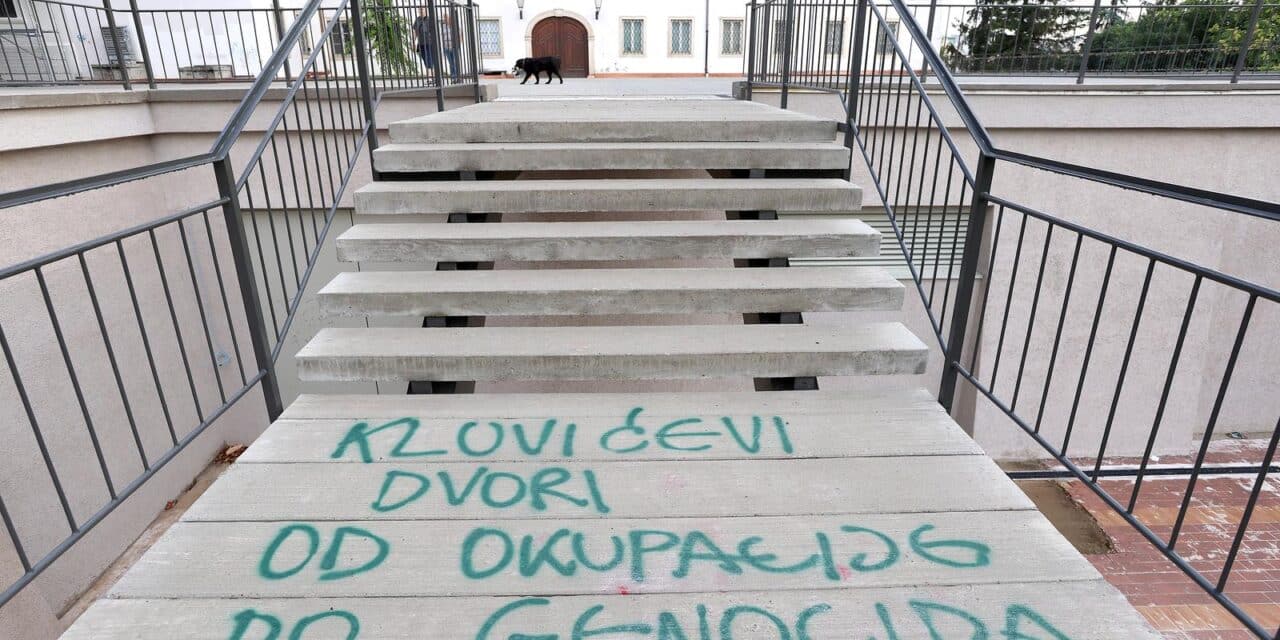 KLOVIĆEVI
DVORI
OD OKUPACIJE
DO GENOCIDA